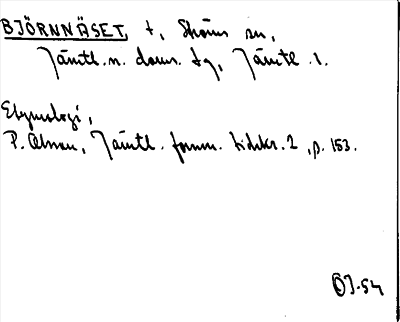 BJÖRNNÄSET, t, Ströms sn,
Jämtl. n. doms. tg, Jämtl. l.
Etymologi,
P. Olsson, Jämtl. fornm. tidskr. 2, p. 153.
ÖJ-54